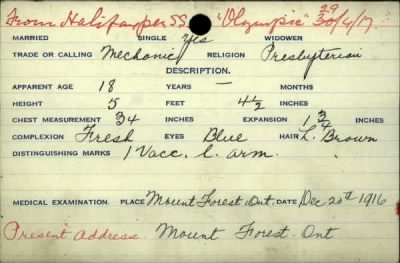 From Halifax per SS "Olympic" 29/30/4/17
MARRIED SINGLE Yes WIDOWER
TRADE OR CALLING Mechanic RELIGION Presbyterian
DESCRIPTION.
APPARENT AGE 18 YEARS — MONTHS
HEIGHT 5 FEET 4½ INCHES
CHEST MEASUREMENT 34 INCHES EXPANSION 1¾ INCHES
COMPLEXION Fresh EYES Blue HAIR L. Brown
DISTINGUISHING MARKS 1 Vacc. l. arm.
MEDICAL EXAMINATION. PLACE Mount Forest, Ont. DATE Dec 20th 1916
Present Address Mount Forest Ont